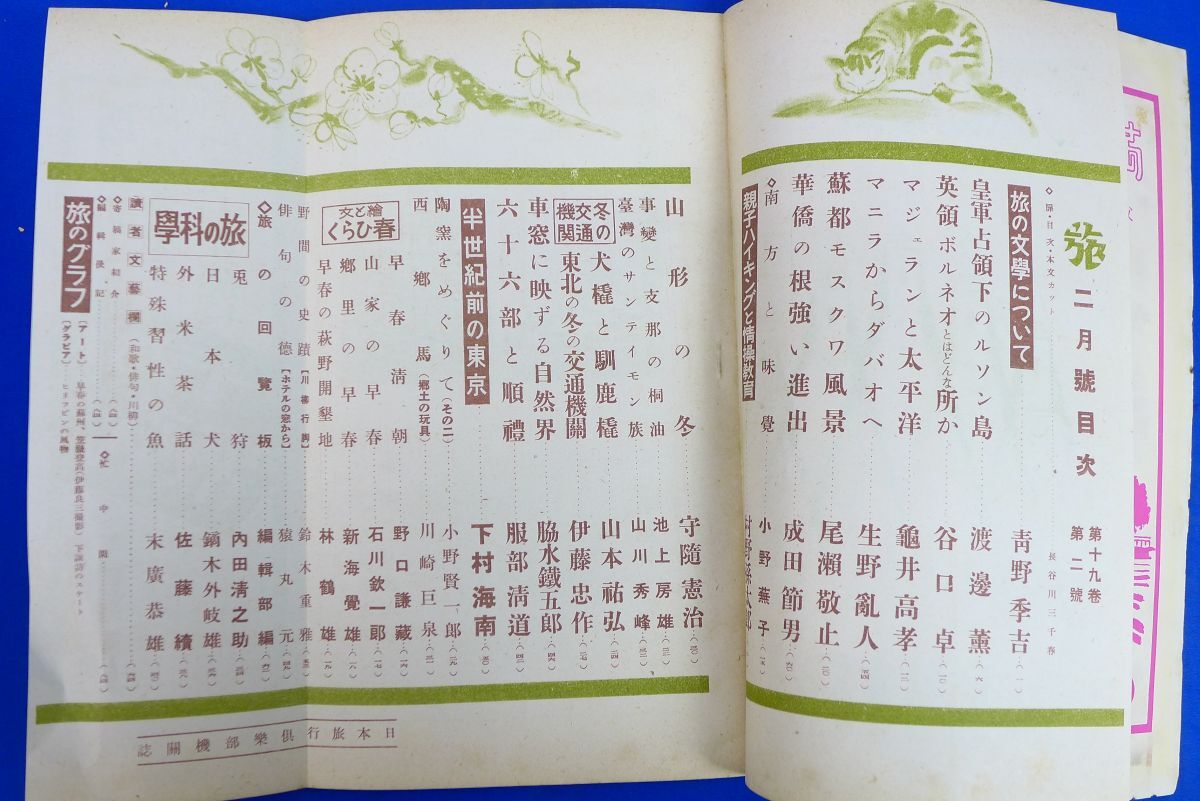 旅 二月號目次 第十九卷 第二號
◇扉・目次・本文カツト 長谷川三千春
旅の文學について 靑野季吉(一)
皇軍占領下のルソン島 渡邊薫(六)
英領ボルネオとはどんな所か 谷口卓(一〇)
マジェランと太平洋 龜井高孝(一三)
マニラからダバオへ 生野亂人
蘇都モスクワ風景 尾瀨敬止
華僑の根強い進出 成田節男
◇南方と味覺 小野蕪子
親子ハイキングと情操教育 村野孫太郎
山形の冬 守隨憲治
事變と支那の桐油 池上房雄
臺灣のサンテイモン族 山川秀峰
冬の交通機関
犬橇と馴鹿橇 山本祐弘
東北の冬の交通機關 伊藤忠作
車窓に映ずる自然界 脇水鐵五郎
六十六部と順禮 服部淸道
半世紀前の東京 下村海南
陶窯をめぐりて(その二) 小野賢一郎
西郷馬(郷土の玩具) 川崎巨泉
繪と文 春ひらく
早春淸朝 野口謙藏
山家の早春 石川欽一郎
郷里の早春 新海覺雄
早春の萩野開墾地 林鶴雄
野間の史蹟【川柳行脚】 鈴木重雅
俳句の德【ホテルの窓から】 猿丸元
◇旅の回覽板 編輯部編
旅の科學
兎狩 內田淸之助
日本犬 鏑木外岐雄
外米茶話 佐藤續
特殊習性の魚 末廣恭雄
讀者文藝欄(和歌・俳句・川柳)
◇寄稿家紹介
◇編輯後記
◇忙中閑
旅のグラフ
(アート) 早春の蘇州、笠置登高(伊藤良三撮影) 下諏訪のスケート
(グラビア) ヒリツピンの風物
日本旅行俱樂部機關誌